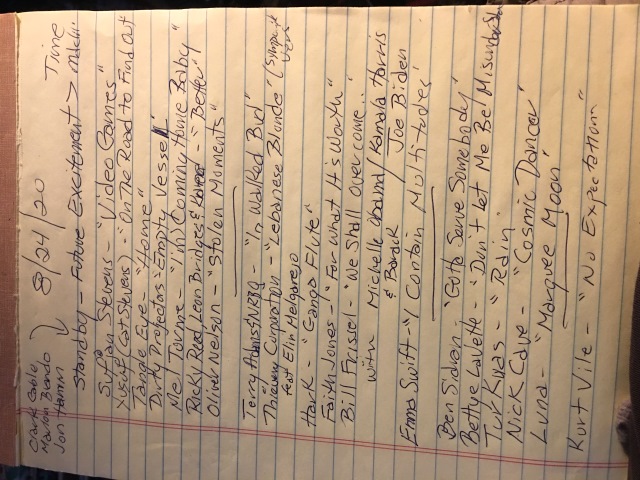 Clark Gable
Marlon Brando
Jon Hamm
8/24/20
Time
Machi.
Standby - Future Excitement >
Sufjan Stevens - "Video Games"
Yusuf (Cat Stevens) - "On The Road to Find Out
Tangle Eye - "Home"
Dirty Projectors - Empty Vessel"
Mel Torme - "I'm) Coming Home Baby"
Ricky Reed, Leon Bridges & - "Better"
Oliver Nelson - "Stolen Moments"
Terry Adams & NRBQ - "In Walked Bud"
Thievery Corporation - "Lebanese Blonde" (Symphonik
Vers
feat Elin Melgarejo
Hark - "Ganga Flute"
Faith Jones - "For What It's Worth"
Bill Frissel - "We Shall Overcome.."
with Michelle Obama / Kamala Harris
& Barack Joe Biden
Emma Swift - "I Contain Multitudes"
Ben Sidran - "Gotta Serve Somebody"
Bettye LaVette - "Don't Let Me Be Misunderstoo
Tur Kuas - "Rain"
Nick Cave - "Cosmic Dancer"
Luna - "Marquee Moon"
Kurt Vile - "No Expectations"